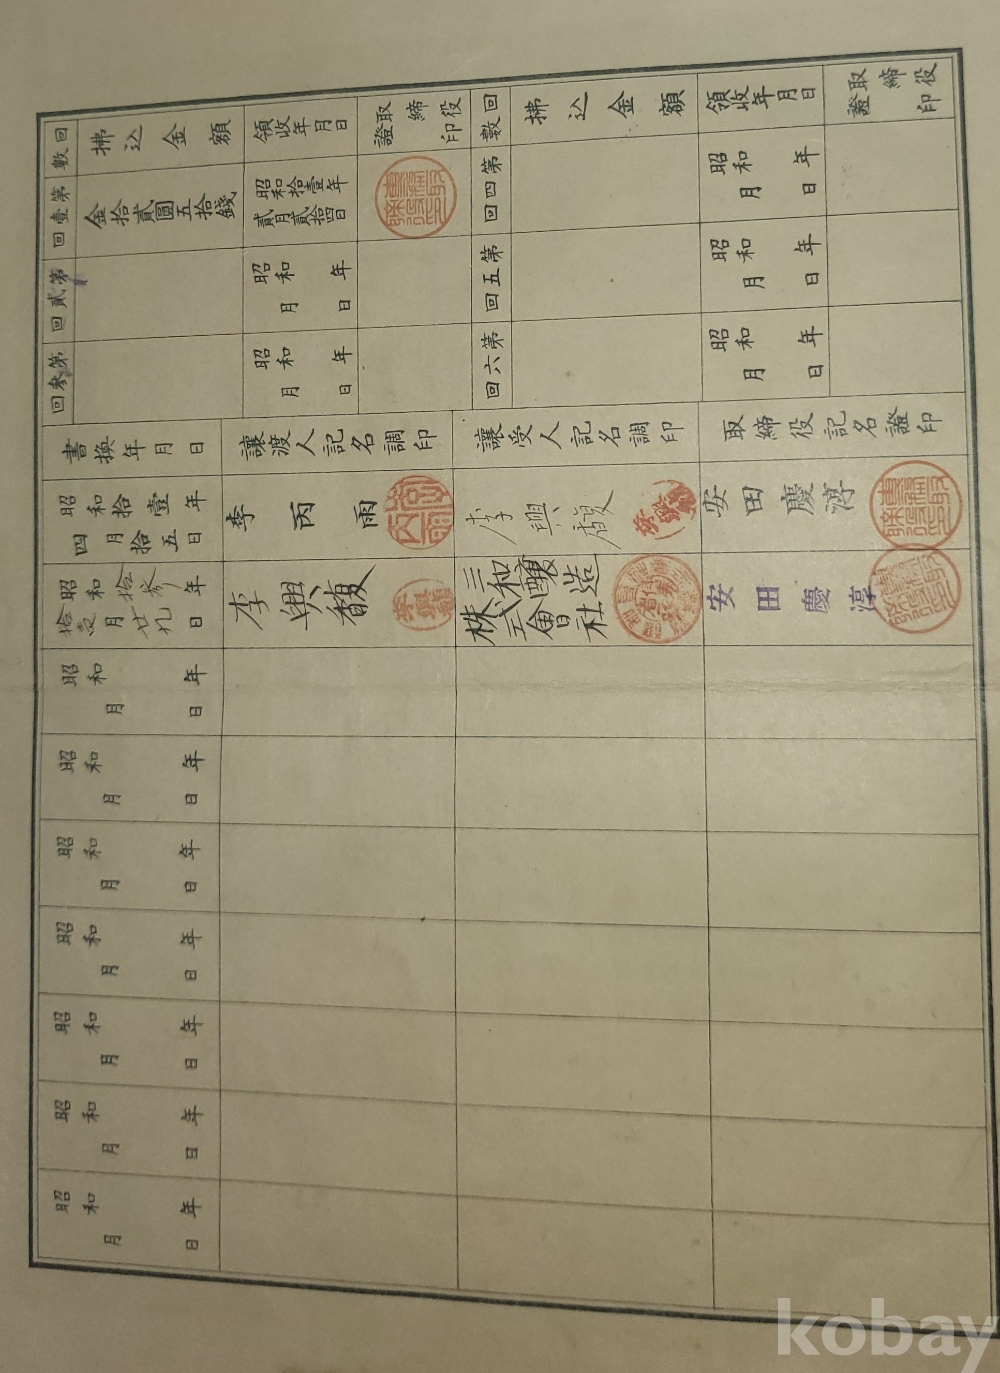 回數
拂込金額
領收年月日
取締役證印
回數
拂込金額
領收年月日
取締役證印
第壹回
金拾貳圓五拾錢
昭和拾壹年貳月貳拾四日
第四回
昭和 年 月 日
第貳回
昭和 年 月 日
第五回
昭和 年 月 日
第參回
昭和 年 月 日
第六回
昭和 年 月 日
書換年月日
讓渡人記名調印
讓受人記名調印
取締役記名證印
昭和拾壹年四月拾五日
李丙雨
李興馥
安田慶淳
昭和拾參年拾壹月廿九日
李興馥
三和釀造株式會社
安田慶淳
昭和 年 月 日
昭和 年 月 日
昭和 年 月 日
昭和 年 月 日
昭和 年 月 日
昭和 年 月 日
昭和 年 月 日
kobay